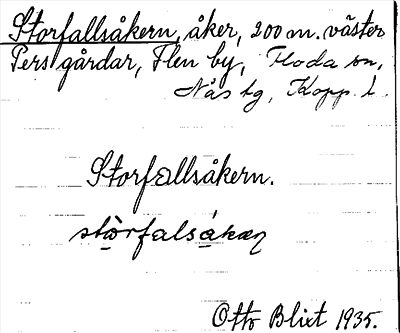 Storfallsåkern, åker, 200 m. väster
Pers gårdar, Flen by, Floda sn,
Nås tg, Kopp. l.
Storfallsåkern.
stòrfalsákæɳ
Otto Blixt 1935.